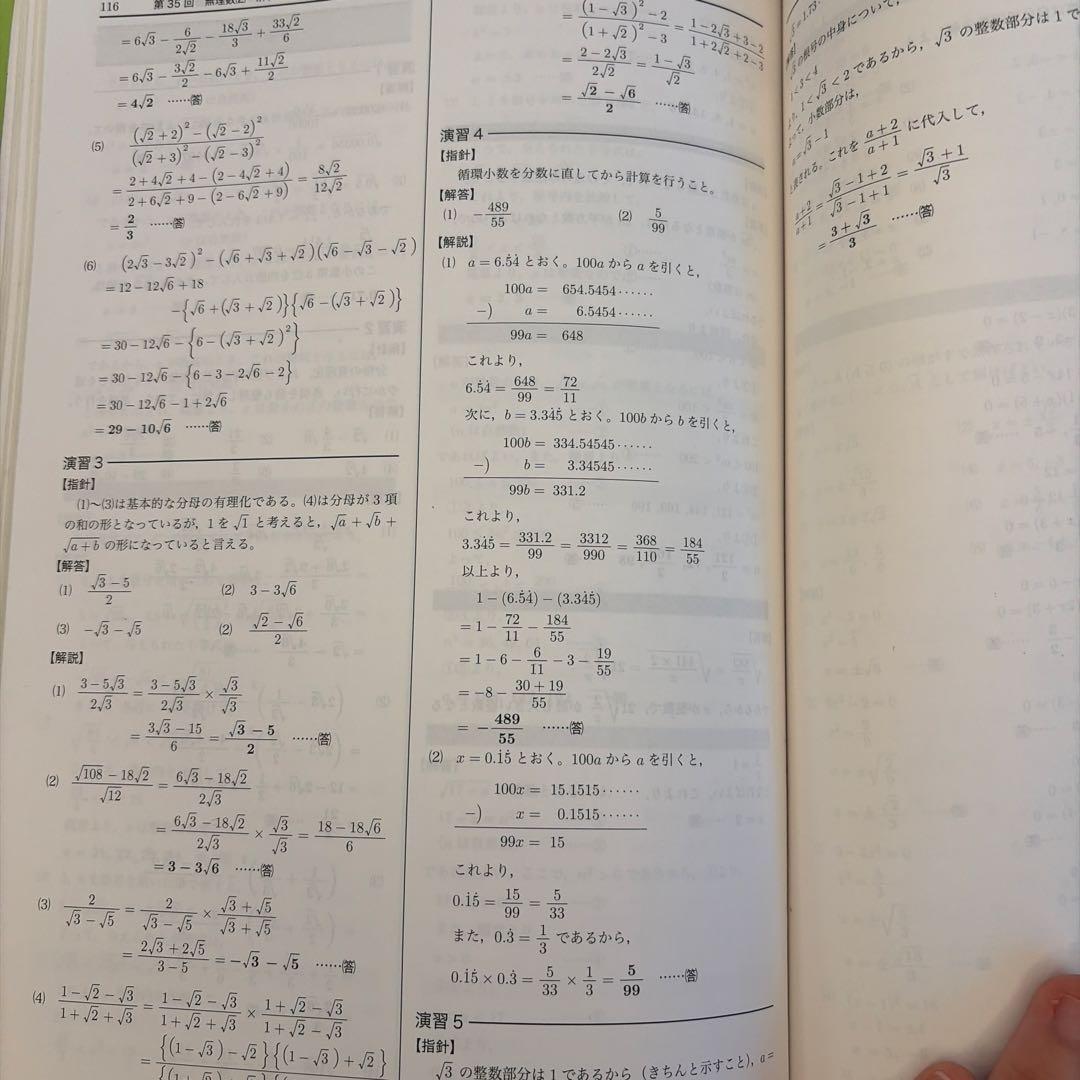 116
第35回
= 6√3 − 6/(2√2) − 18√3/3 + 33√2/6
= 6√3 − 3√2/2 − 6√3 + 11√2/2
= 4√2 ……(答)
(5) ((√2+2)² − (√2−2)²)/((√2+3)² − (√2−3)²)
= (2+4√2+4−(2−4√2+4))/(2+6√2+9−(2−6√2+9)) = 8√2/12√2
= 2/3 ……(答)
(6) (2√3−3√2)² − (√6+√3+√2)(√6−√3−√2)
= 12−12√6+18
−{√6+(√3+√2)}{√6−(√3+√2)}
= 30−12√6−{6−(√3+√2)²}
= 30−12√6−{6−3−2√6−2}
= 30−12√6−1+2√6
= 29−10√6 ……(答)
演習3
【指針】
(1)~(3)は基本的な分母の有理化である。(4)は分母が3項
の和の形となっているが，1を√1と考えると，√a+√b+
√(a+b) の形になっていると言える。
【解答】
(1) (√3−5)/2 (2) 3−3√6
(3) −√3−√5 (2) (√2−√6)/2
【解説】
(1) (3−5√3)/(2√3) = (3−5√3)/(2√3) × √3/√3
= (3√3−15)/6 = (√3−5)/2 ……(答)
(2) (√108−18√2)/√12 = (6√3−18√2)/(2√3)
= (6√3−18√2)/(2√3) × √3/√3 = (18−18√6)/6
= 3−3√6 ……(答)
(3) 2/(√3−√5) = 2/(√3−√5) × (√3+√5)/(√3+√5)
= (2√3+2√5)/(3−5) = −√3−√5 ……(答)
(4) (1−√2−√3)/(1+√2+√3) = (1−√2−√3)/(1+√2+√3) × (1+√2−√3)/(1+√2−√3)
= {(1−√3)−√2}{(1−√3)+√2}
= ((1−√3)²−2)/((1+√2)²−3) = (1−2√3+3−2)/(1+2√2+2−3)
= (2−2√3)/(2√2) = (1−√3)/√2
= (√2−√6)/2 ……(答)
演習4
【指針】
循環小数を分数に直してから計算を行うこと。
【解答】
(1) −489/55 (2) 5/99
【解説】
(1) a=6.5̇4̇ とおく。100aからaを引くと，
100a = 654.5454……
−) a = 6.5454……
99a = 648
これより，
6.5̇4̇ = 648/99 = 72/11
次に，b=3.34̇5̇ とおく。100bからbを引くと，
100b = 334.54545……
−) b = 3.34545……
99b = 331.2
これより，
3.34̇5̇ = 331.2/99 = 3312/990 = 368/110 = 184/55
以上より，
1−(6.5̇4̇)−(3.34̇5̇)
= 1 − 72/11 − 184/55
= 1−6−6/11−3−19/55
= −8 − (30+19)/55
= −489/55 ……(答)
(2) x=0.1̇5̇ とおく。100aからaを引くと，
100x = 15.1515……
−) x = 0.1515……
99x = 15
これより，
0.1̇5̇ = 15/99 = 5/33
また，0.3̇ = 1/3 であるから，
0.1̇5̇ × 0.3̇ = 5/33 × 1/3 = 5/99 ……(答)
演習5
【指針】
√3 の整数部分は1であるから（きちんと示すこと），a=
=1.73
√3 の根号の中身について，
1<3<4
より，1<√3<2 であるから，√3 の整数部分は1で
よって，小数部分は，
a=√3−1
と表される。これを (a+2)/(a+1) に代入して，
(a+2)/(a+1) = (√3−1+2)/(√3−1+1) = (√3+1)/√3
= (3+√3)/3 ……(答)